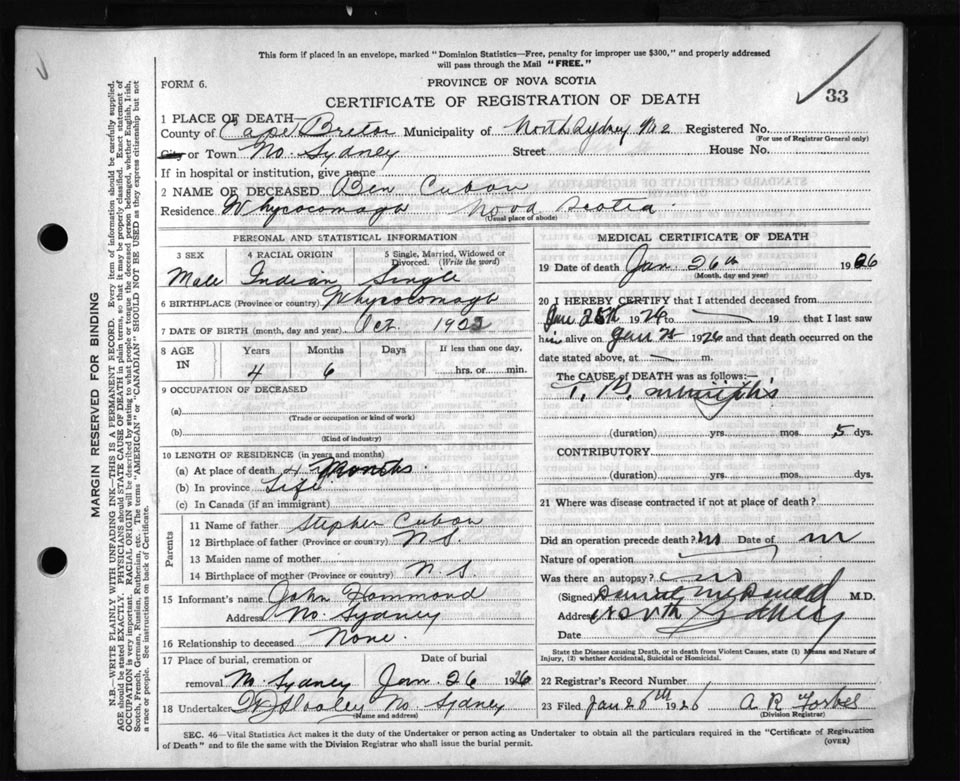 This form if placed in an envelope, marked "Dominion Statistics—Free, penalty for improper use $300," and properly addressed
will pass through the Mail "FREE."
FORM 6.
PROVINCE OF NOVA SCOTIA
33
CERTIFICATE OF REGISTRATION OF DEATH
1 PLACE OF DEATH
County of Cape Breton Municipality of North Sydney No 2 Registered No.
(For use of Registrar General only)
City or Town No. Sydney Street House No.
If in hospital or institution, give name
2 NAME OF DECEASED Ben Cubon
Residence Whycocomagh Nova Scotia
(Usual place of abode)
PERSONAL AND STATISTICAL INFORMATION
3 SEX 4 RACIAL ORIGIN 5 Single, Married, Widowed or Divorced. (Write the word)
Male Indian Single
6 BIRTHPLACE (Province or country) Whycocomagh
7 DATE OF BIRTH (month, day and year) Oct.
8 AGE IN Years Months Days If less than one day,
4 6 hrs. or min.
9 OCCUPATION OF DECEASED
(a)
(Trade or occupation or kind of work)
(b)
(Kind of industry)
10 LENGTH OF RESIDENCE (in years and months)
(a) At place of death 4 Months.
(b) In province Life
(c) In Canada (if an immigrant)
Parents
11 Name of father Stephen Cubon
12 Birthplace of father (Province or country) N.S.
13 Maiden name of mother
14 Birthplace of mother (Province or country) N.S.
15 Informant's name John Hammond
Address No. Sydney
16 Relationship to deceased None.
17 Place of burial, cremation or removal Date of burial
No. Sydney Jan. 26 1926
18 Undertaker No. Sydney
(Name and address)
MEDICAL CERTIFICATE OF DEATH
19 Date of death Jan 26th 1926
(Month, day and year)
20 I HEREBY CERTIFY that I attended deceased from
Jan 25th 1926 to 19 that I last saw
him alive on Jan 1926 and that death occurred on the
date stated above, at m.
The CAUSE of DEATH was as follows:—
T. B.
(duration) yrs. mos. 5 dys.
CONTRIBUTORY
(duration) yrs. mos. dys.
21 Where was disease contracted if not at place of death?
Did an operation precede death? no Date of
Nature of operation
Was there an autopsy? no
(Signed) McDonald M.D.
Address North Sydney
Date
State the Disease causing Death, or in death from Violent Causes, state (1) Means and Nature of
Injury, (2) whether Accidental, Suicidal or Homicidal.
22 Registrar's Record Number
23 Filed Jan 1926 A R Forbes
(Division Registrar)
SEC. 46—Vital Statistics Act makes it the duty of the Undertaker or person acting as Undertaker to obtain all the particulars required in the "Certificate of Registration
of Death" and to file the same with the Division Registrar who shall issue the burial permit.
(OVER)
MARGIN RESERVED FOR BINDING
N.B.—WRITE PLAINLY, WITH UNFADING INK—THIS IS A PERMANENT RECORD. Every item of information should be carefully supplied.
AGE should be stated EXACTLY. PHYSICIANS should STATE CAUSE OF DEATH in plain terms, so that it may be properly classified. Exact statement of
OCCUPATION is very important. RACIAL ORIGIN will be described by stating to what people or tongue the deceased person belonged, whether English, Irish,
Scotch, French, German, Russian, Ruthenian, etc. The terms "AMERICAN" or "CANADIAN" SHOULD NOT BE USED as they express citizenship but not
a race or people. See instructions on back of Certificate.